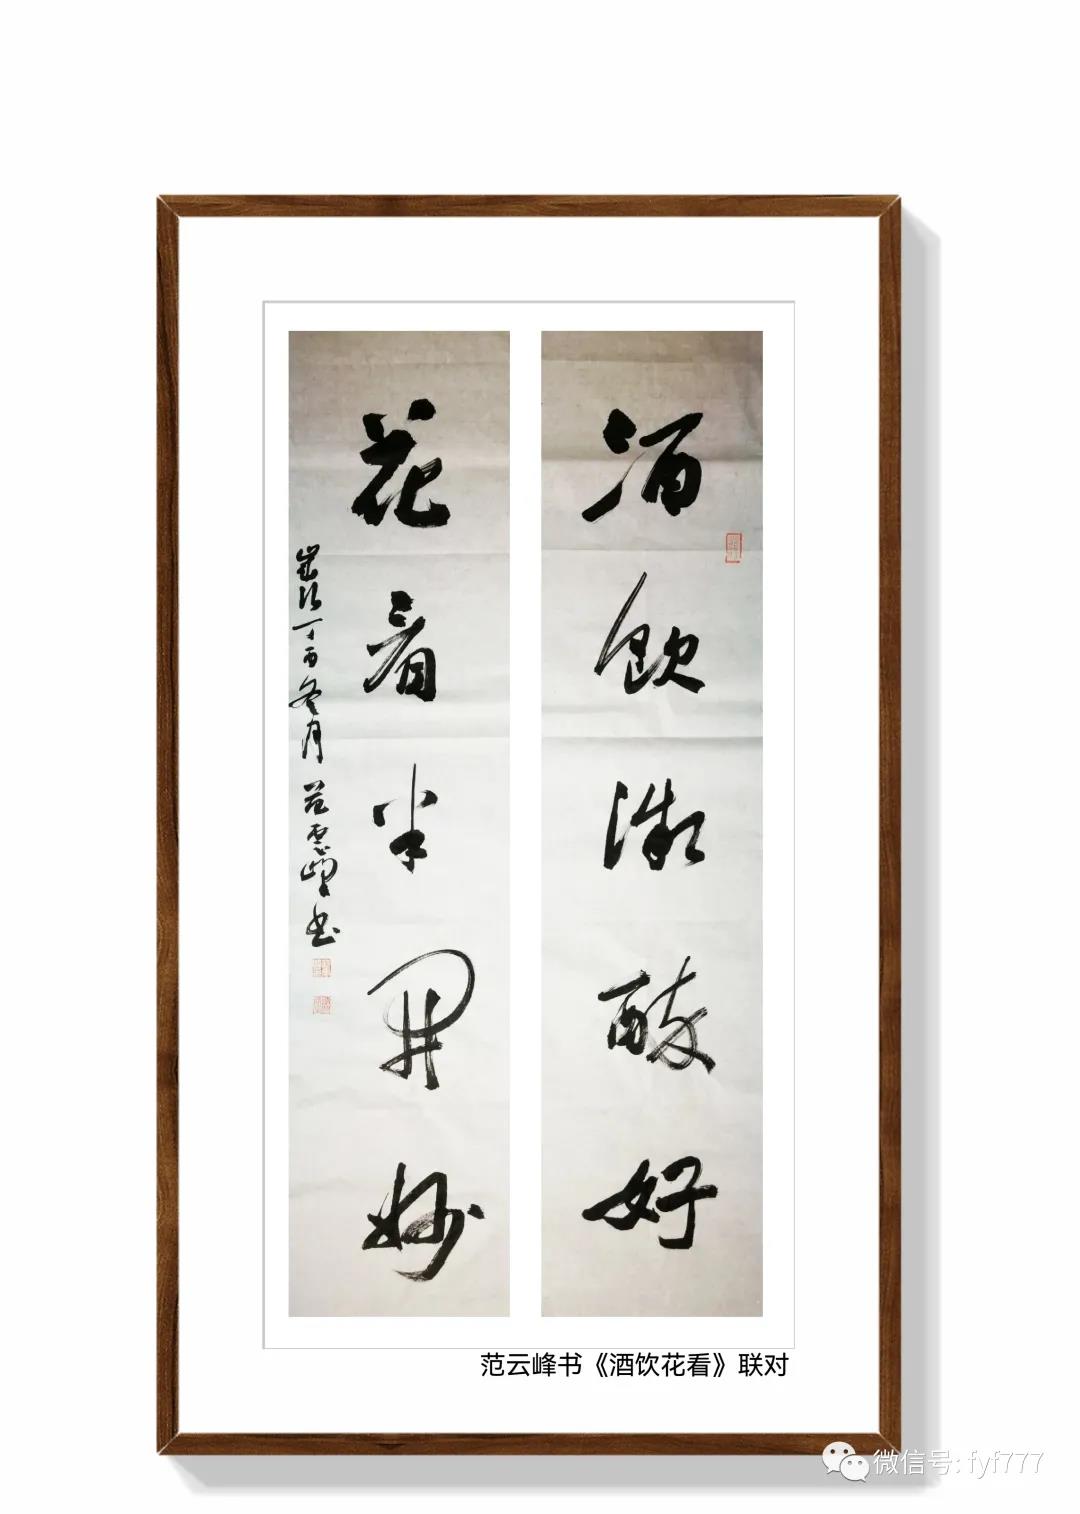 酒飲微醉好
花看半開妙
歲次丁酉冬月 范雲峰书
范云峰书《酒饮花看》联对
微信号: fyf777